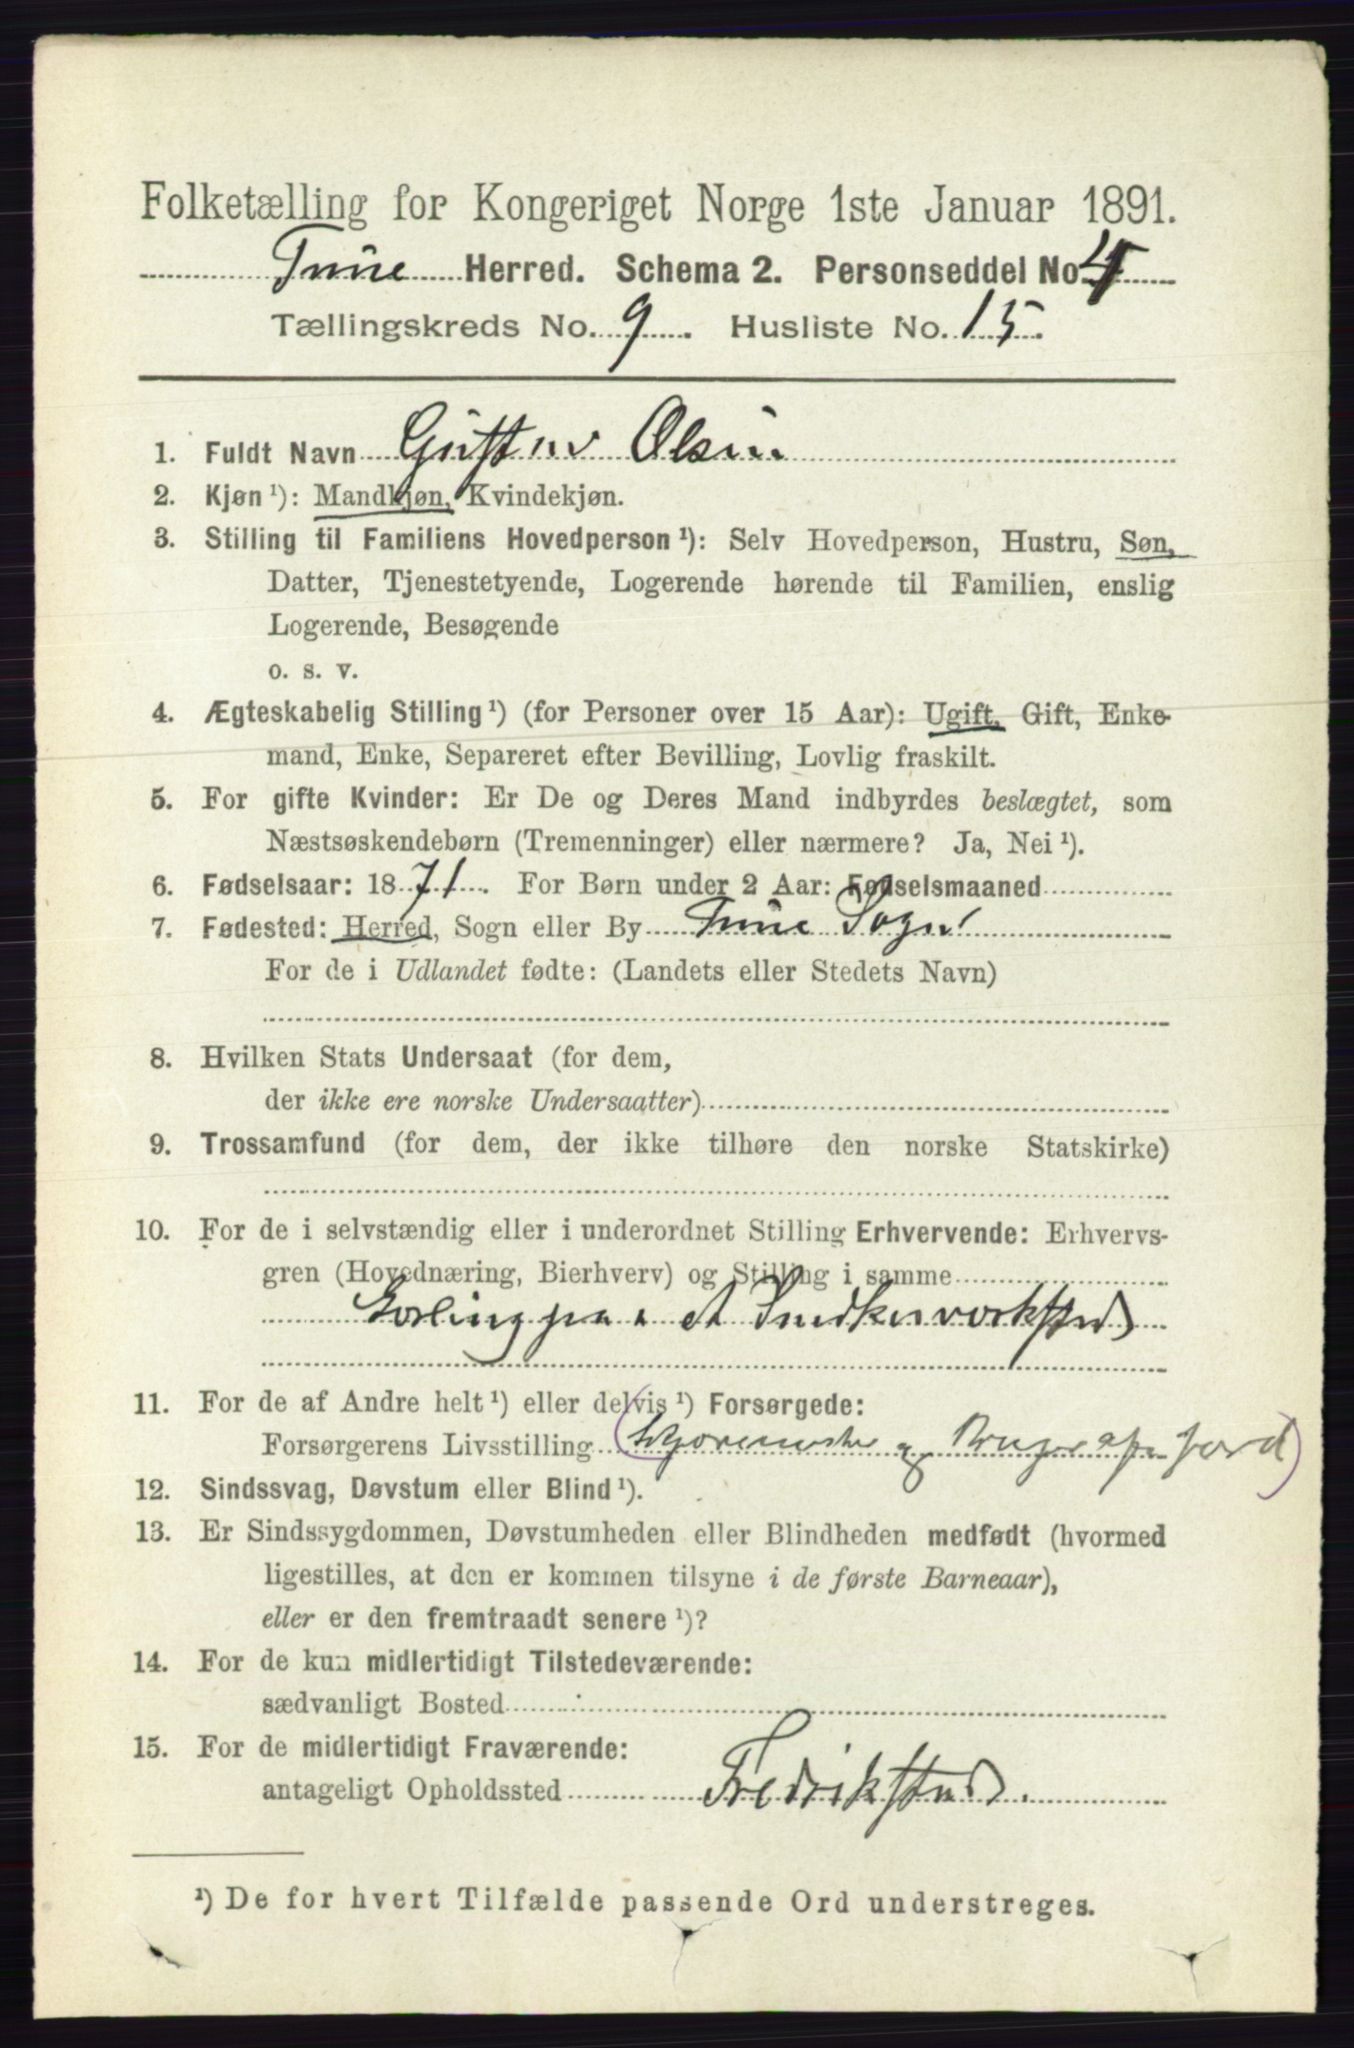 Folketælling for Kongeriget Norge 1ste Januar 1891.
Tune Herred. Schema 2. Personseddel No. 4
Tællingskreds No. 9. Husliste No. 15.
1. Fuldt Navn Gustav Olsen
2. Kjøn ¹): Mandkjøn, Kvindekjøn.
3. Stilling til Familiens Hovedperson ¹): Selv Hovedperson, Hustru, Søn,
Datter, Tjenestetyende, Logerende hørende til Familien, enslig
Logerende, Besøgende
o. s. v.
4. Ægteskabelig Stilling ¹) (for Personer over 15 Aar): Ugift, Gift, Enke-
mand, Enke, Separeret efter Bevilling, Lovlig fraskilt.
5. For gifte Kvinder: Er De og Deres Mand indbyrdes beslægtet, som
Næstsøskendebørn (Tremenninger) eller nærmere? Ja, Nei ¹).
6. Fødselsaar: 1871. For Børn under 2 Aar: Fødselsmaaned
7. Fødested: Herred, Sogn eller By Tune Sogn
For de i Udlandet fødte: (Landets eller Stedets Navn)
8. Hvilken Stats Undersaat (for dem,
der ikke ere norske Undersaatter)
9. Trossamfund (for dem, der ikke tilhøre den norske Statskirke)
10. For de i selvstændig eller i underordnet Stilling Erhvervende: Erhvervs-
gren (Hovednæring, Bierhverv) og Stilling i samme
paa et Snedkerverksted
11. For de af Andre helt ¹) eller delvis ¹) Forsørgede:
Forsørgerens Livsstilling (og Bruger af Jord)
12. Sindssvag, Døvstum eller Blind ¹).
13. Er Sindssygdommen, Døvstumheden eller Blindheden medfødt (hvormed
ligestilles, at den er kommen tilsyne i de første Barneaar),
eller er den fremtraadt senere ¹)?
14. For de kun midlertidigt Tilstedeværende:
sædvanligt Bosted
15. For de midlertidigt Fraværende:
antageligt Opholdssted Fredrikstad.
¹) De for hvert Tilfælde passende Ord understreges.